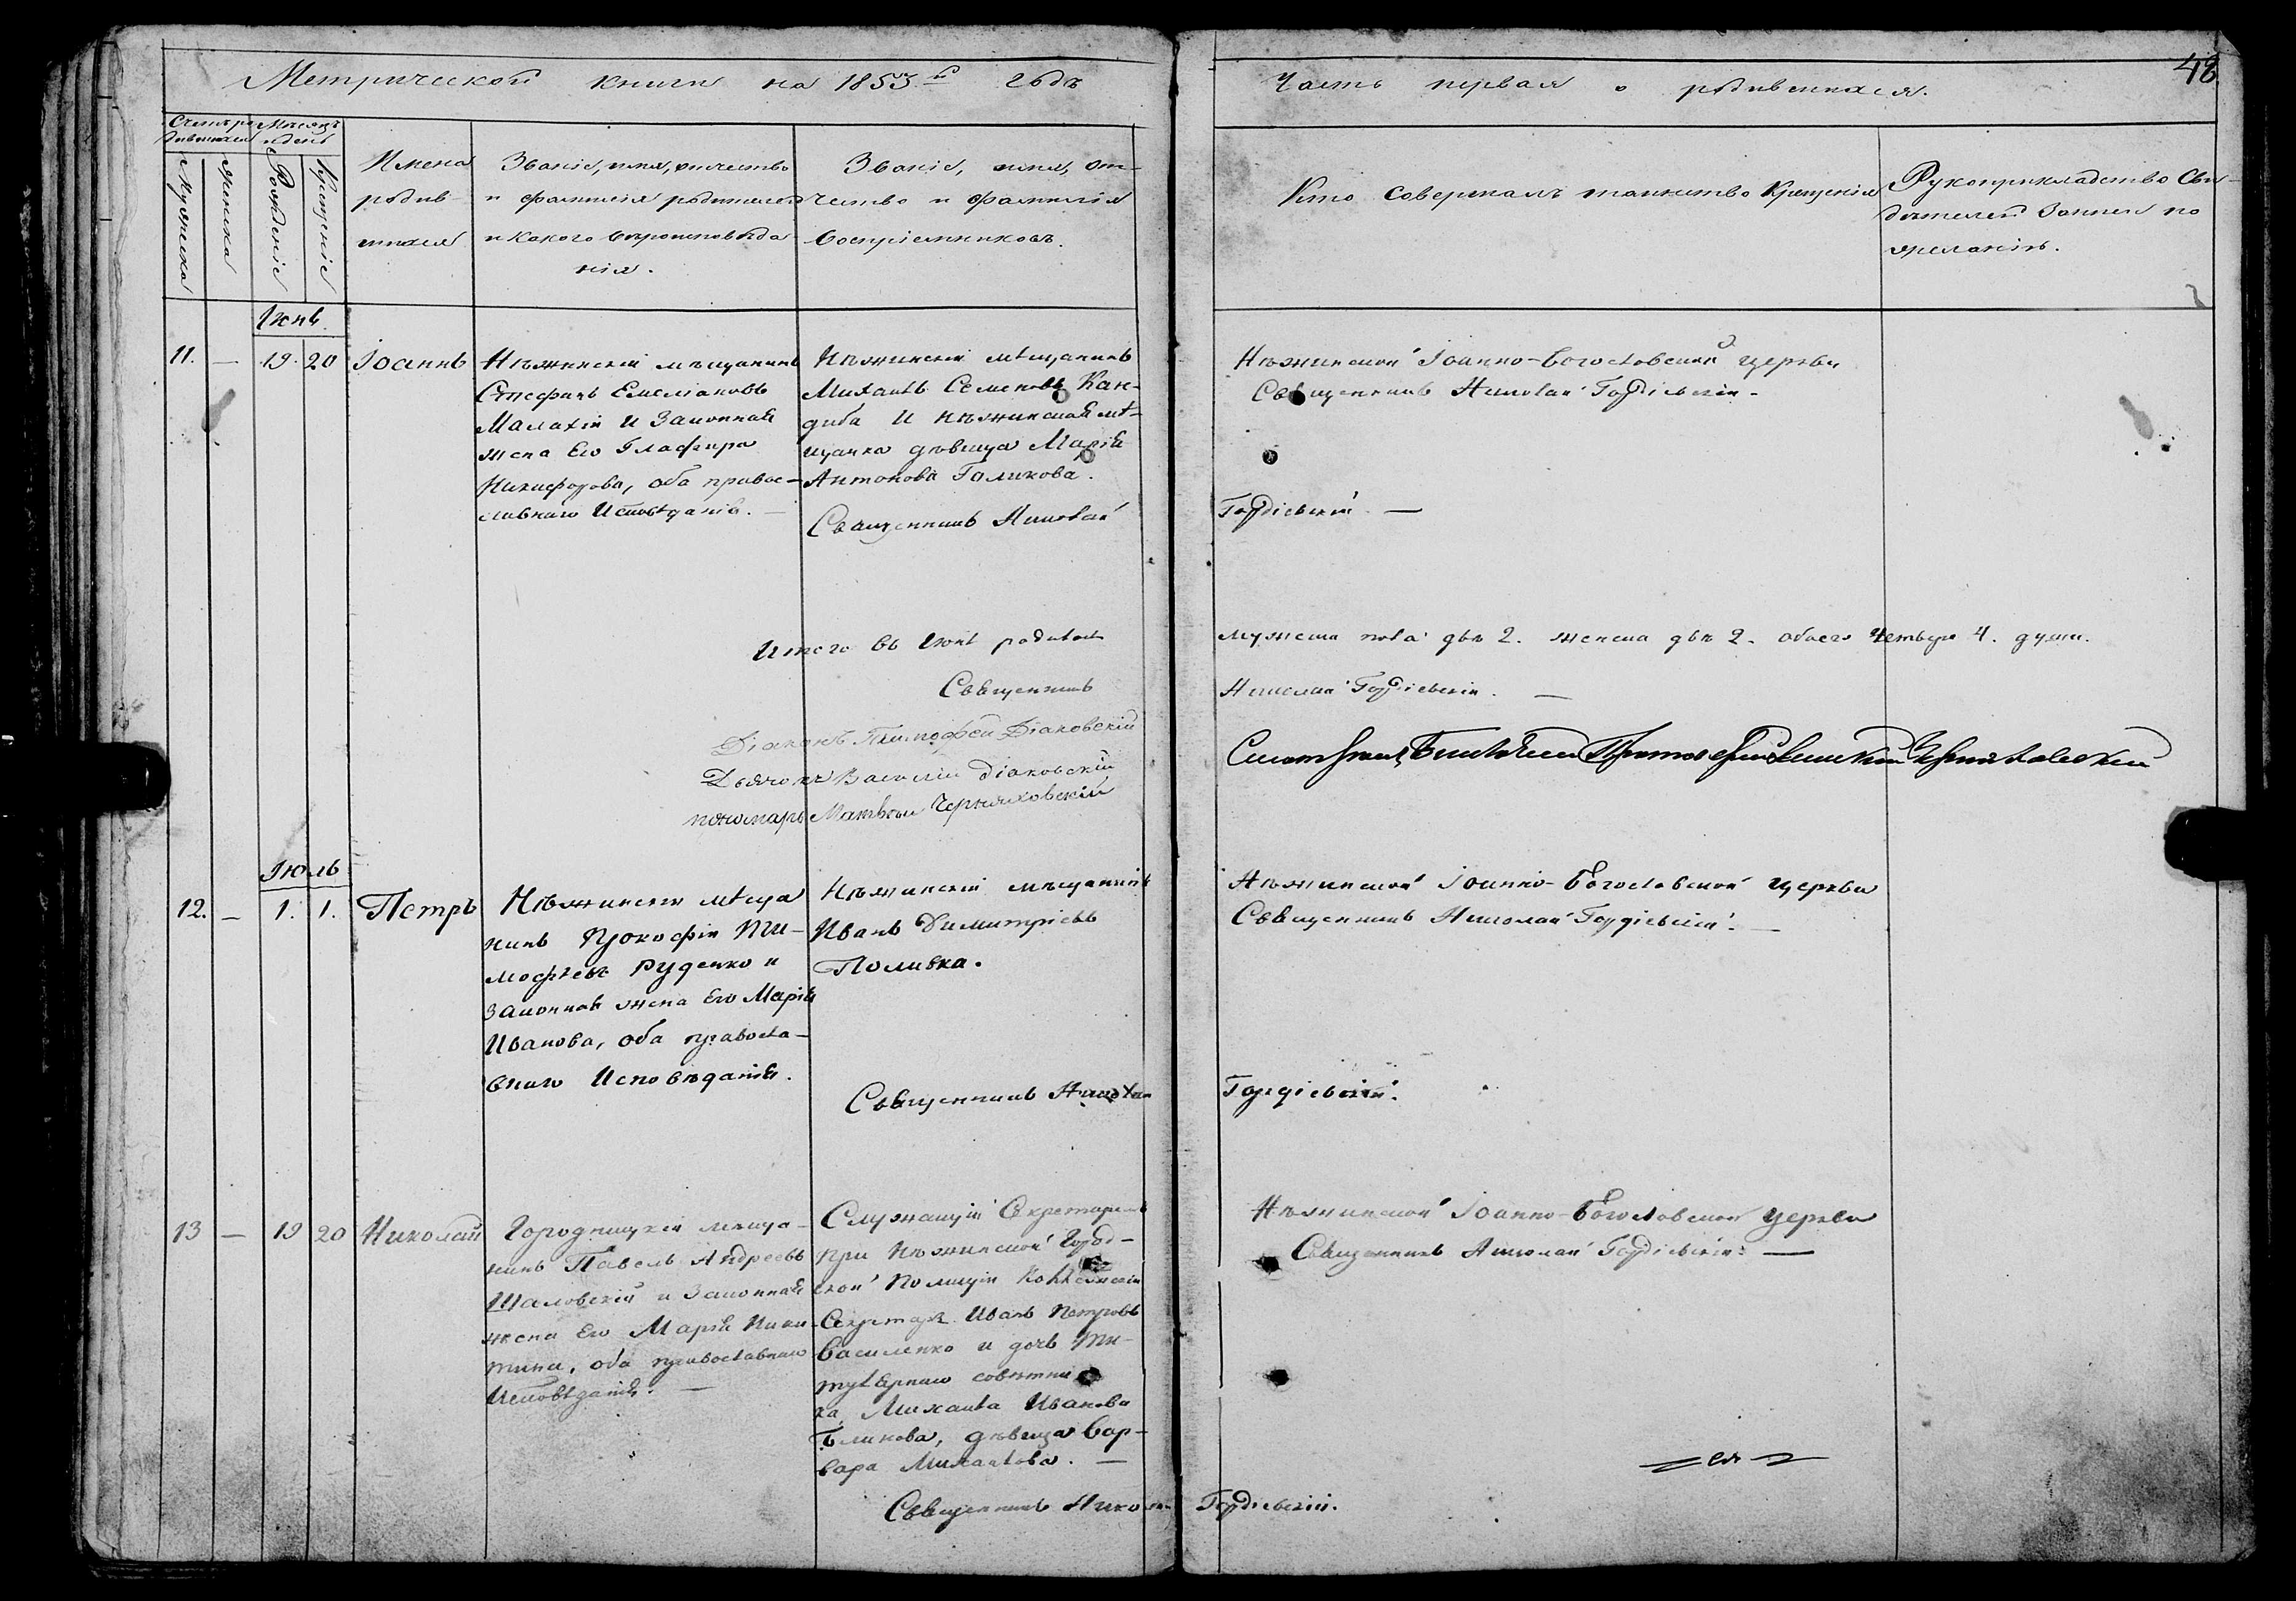 Метрической книги на 1853й годъ
Часть первая о родившихся.
48
Счетъ ро
дившихся
Мѣсяцъ
и день
Мужеска
Женска
Рожденіе
Крещеніе
Имена
родив-
шихся
Званіе, имя, отчество
и фамилія родителей
и какого вѣроисповѣда
нія.
Званіе, имя, от-
чество и фамилія
воспріемниковъ.
Кто совершалъ таинство Крещенія
Рукоприкладство Сви
дѣтелей записи по
желанію.
Іюнь.
11. — 19. 20 Іоаннъ
Нѣжинскій мѣщанинъ
Стефанъ Емеліановъ
Малахій и Законная
жена Его Глафира
Никифорова, оба правос-
лавнаго Исповѣданія. —
Нѣжинскій мѣщанинъ
Михаилъ Семеновъ Кан-
диба И нѣжинская мѣ-
щанка дѣвица Марія
Антонова Голикова.
Священникъ Николай
Нѣжинской Іоанно-Богословской церкви
Священникъ Николай Гордіевскій -
Гордіевскій. —
Итого въ Іюнѣ родилось
мужеска пола двѣ 2. женска двѣ 2. обоего четыре 4. души.
Священникъ
Николай Гордіевскій. —
Діаконъ Тимофей Діаковскій
Дьячокъ Василій Діаковскій
пономарь Матвей Черняховскій
Іюль
12. — 1. 1. Петръ
Нѣжинскій мѣща
нинъ Прокофій Ти-
мофѣевъ Руденко и
Законная жена Его Марія
Иванова, оба правосла-
внаго Исповѣданія.
Нѣжинскій мѣщанинъ
Иванъ Димитріевъ
Поливка.
Священникъ Николай
Нѣжинской Іоанно-Богословской церкви
Священникъ Николай Гордіевскій. —
Гордіевскій.
13 — 19 20 Николай
Городницкій мѣща-
нинъ Павелъ Андреевъ
Шаловскій и Законная
жена Его Марія Ники-
тина, оба православнаго
Исповѣданія. —
Служащій Секретаремъ
при Нѣжинской Город-
ской Полиціи Коллежскій
Секретарь Иванъ Петровъ
Василенко и дочь Ти-
тулярнаго совѣтни
ка, Михаила Иванова
дѣвица Вар-
вара Михайлова. —
Священникъ Николай
Нѣжинской Іоанно-Богословской церкви
Священникъ Николай Гордіевскій. —
Гордіевскій.